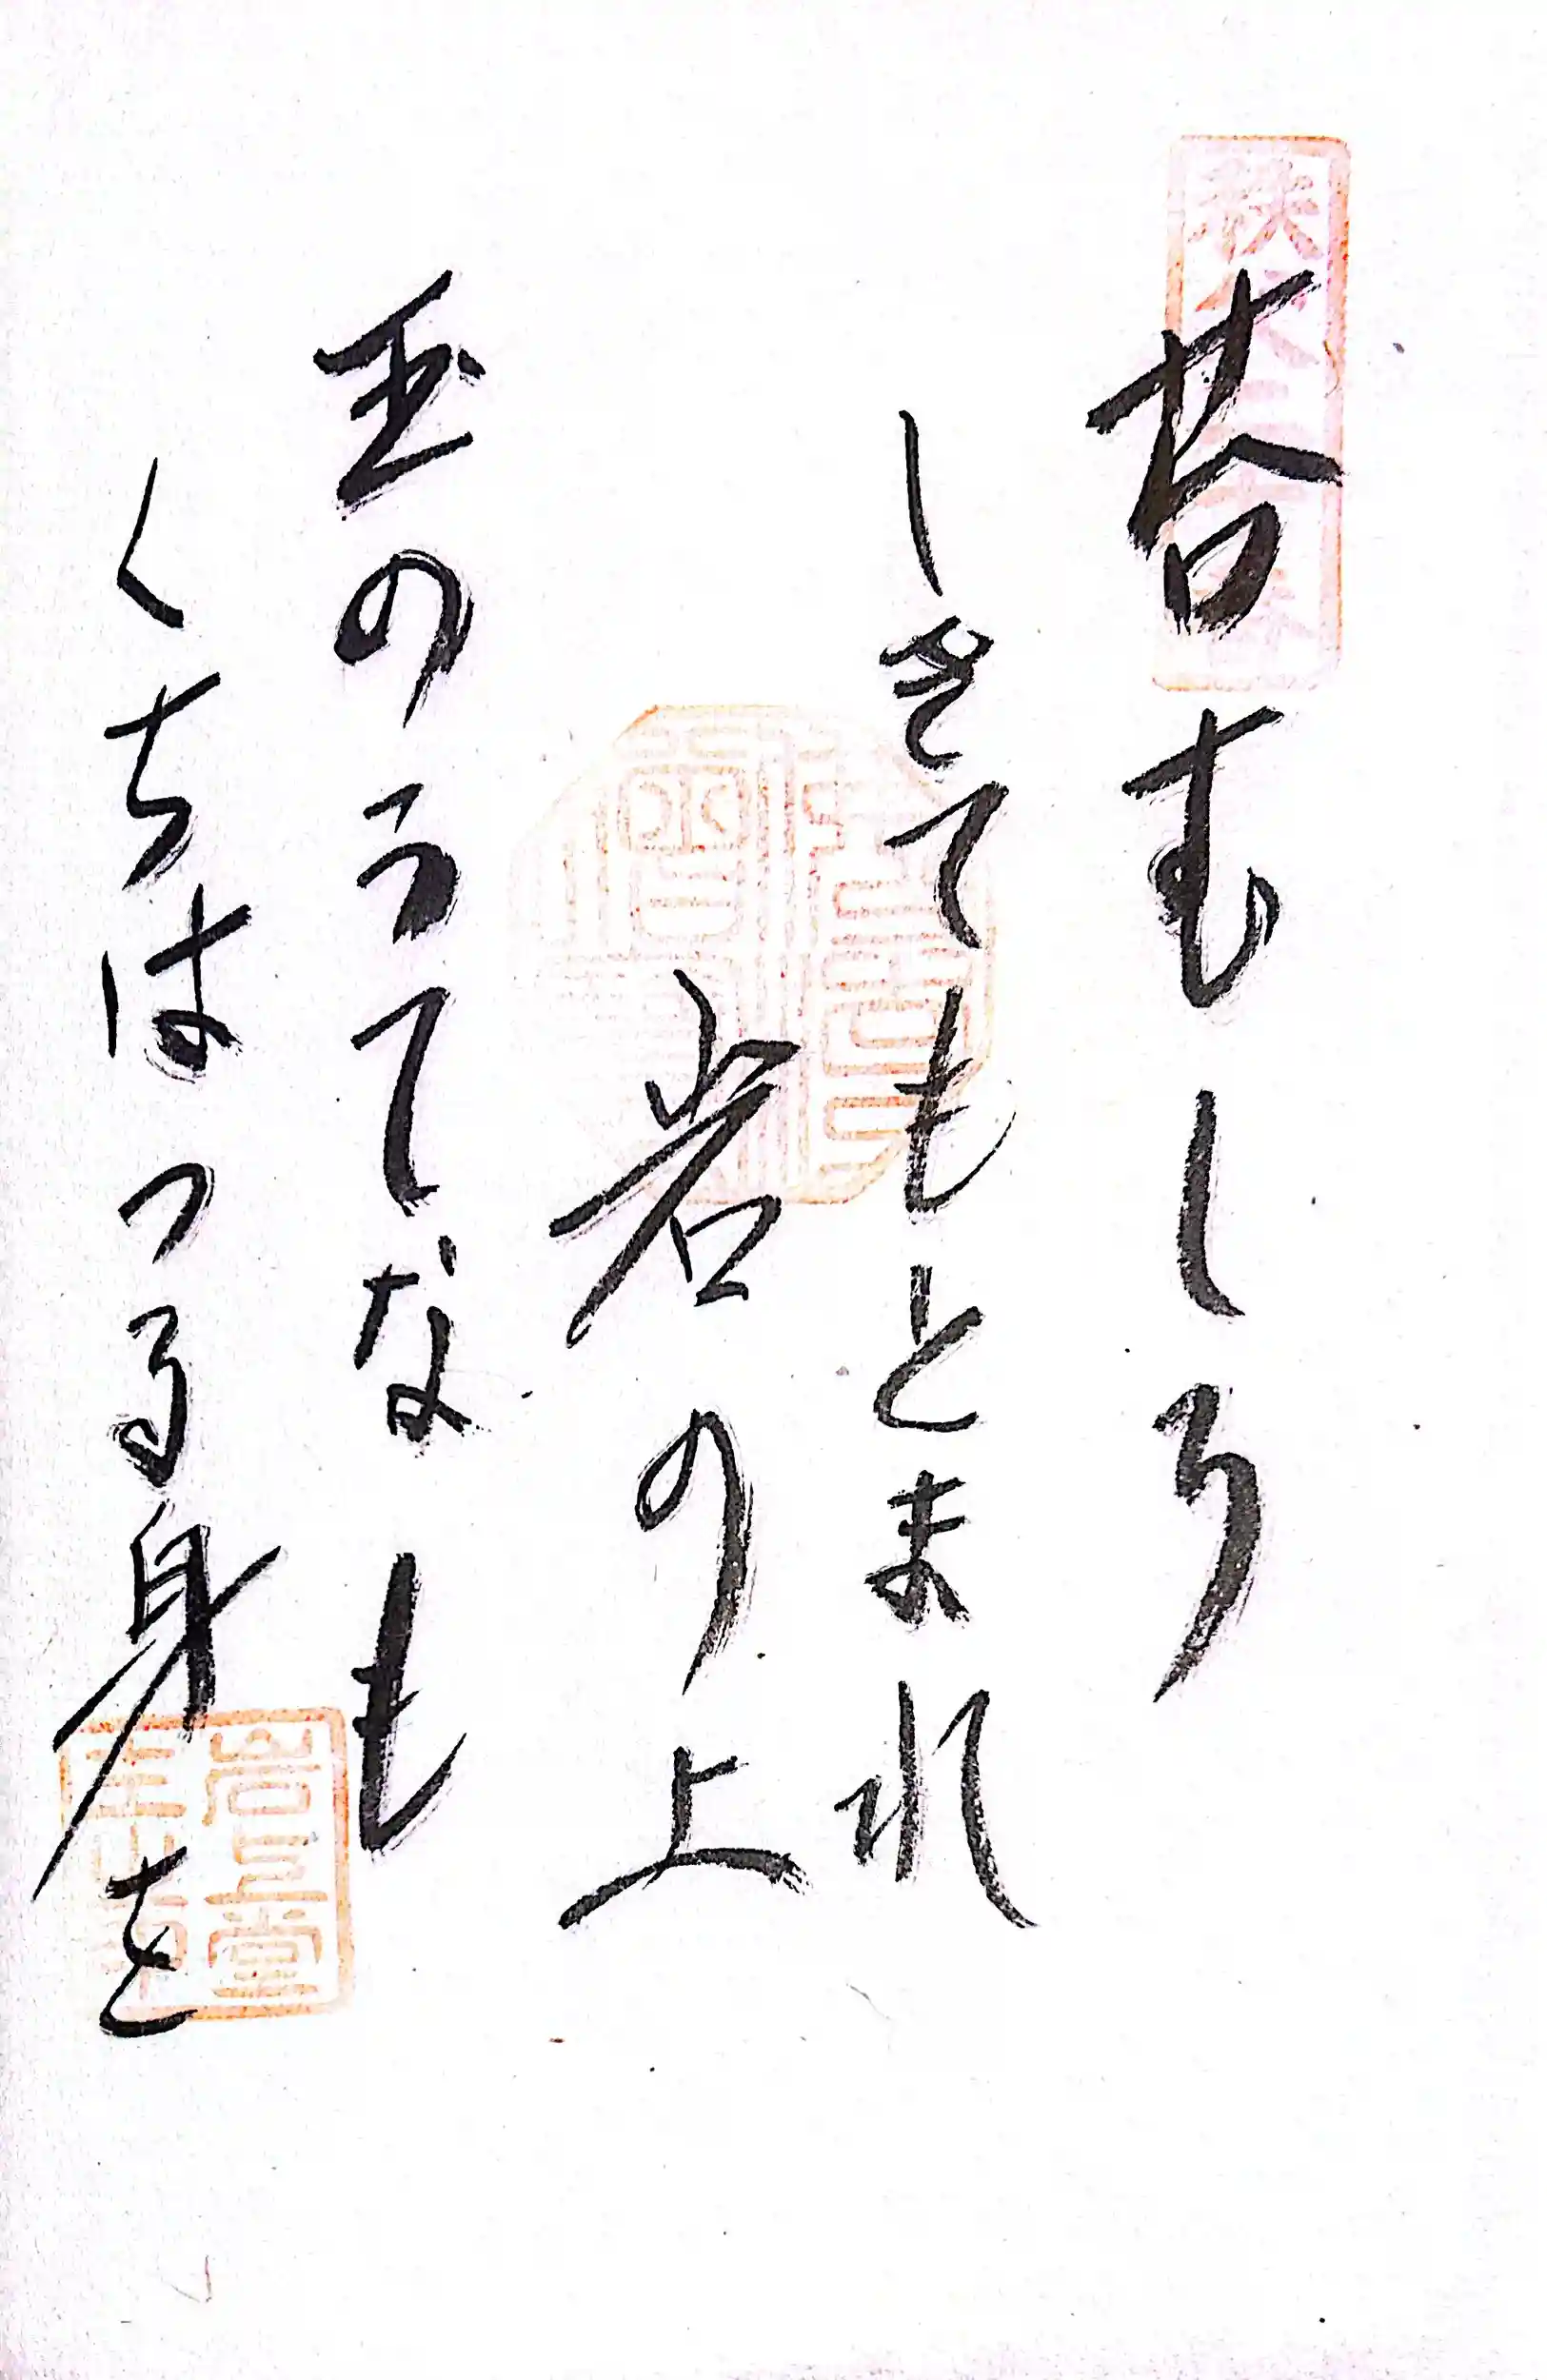 秩父二十番
苔むしろ
しきてもとまれ
岩の上
玉のうてなも
くちはつる身を
岩上堂